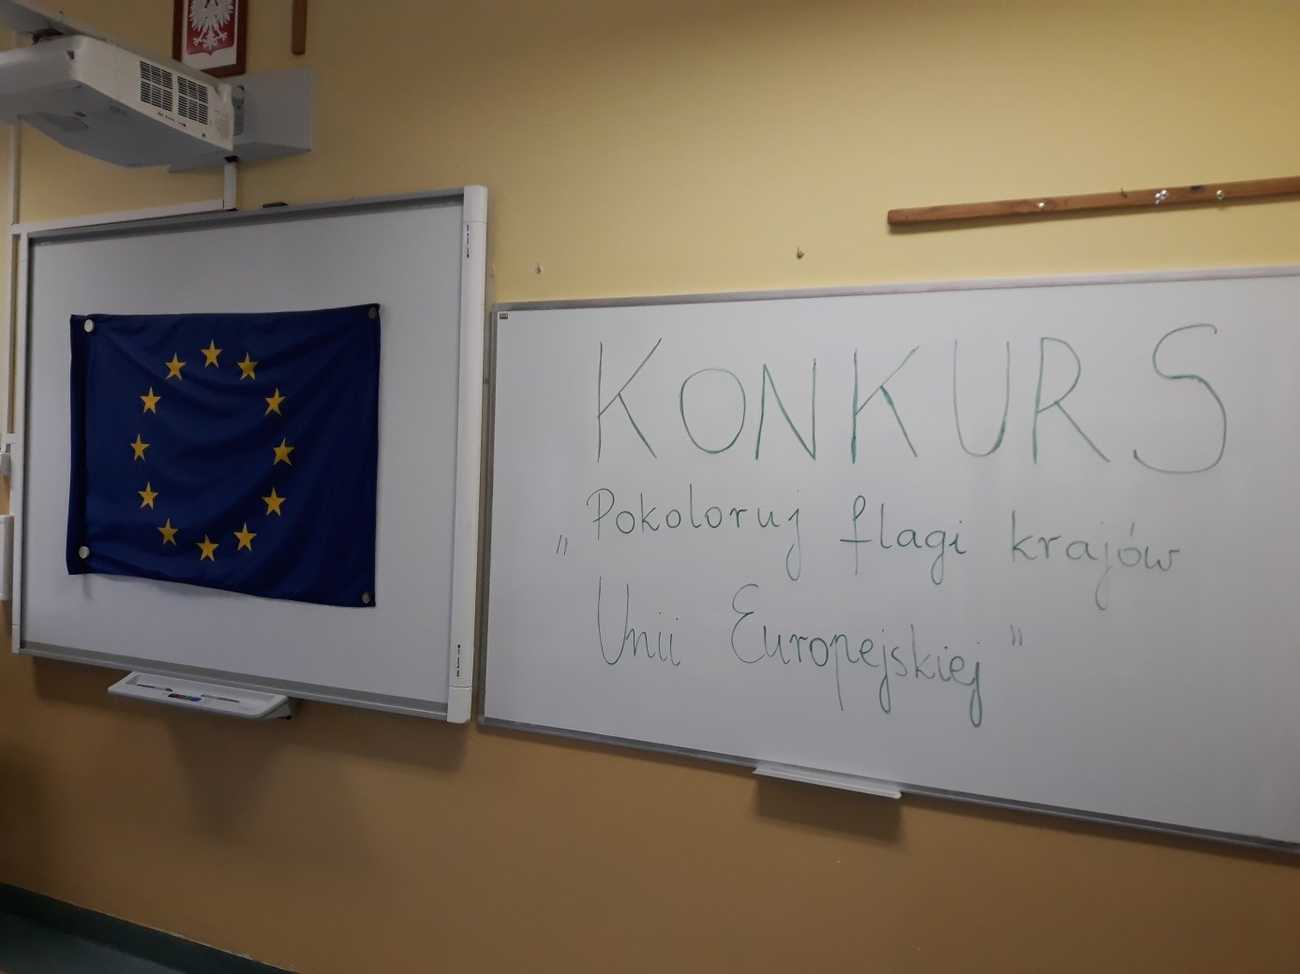 KONKURS
„Pokoloruj flagi krajów
Unii Europejskiej"